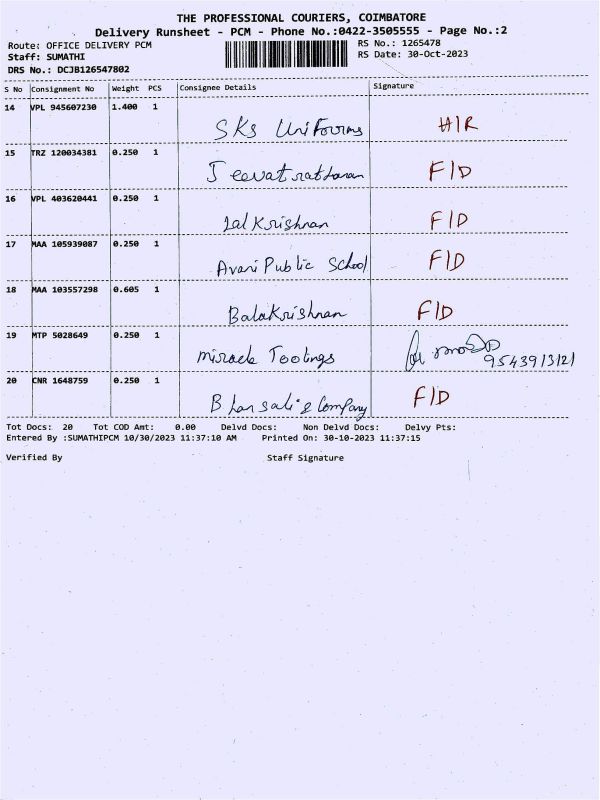 THE PROFESSIONAL COURIERS, COIMBATORE
Delivery Runsheet - PCM - Phone No.:0422-3505555 - Page No.:2
Route: OFFICE DELIVERY PCM RS No.: 1265478
Staff: SUMATHI RS Date: 30-Oct-2023
DRS No.: DCJB126547802
S No Consignment No Weight PCS Consignee Details Signature
14 VPL 945607230 1.400 1
SKS Uniforms H/R
15 TRZ 120034381 0.250 1
Jeevatrathanan F/D
16 VPL 403620441 0.250 1
Lal Krishnan F/D
17 MAA 105939087 0.250 1
Avani Public School F/D
18 MAA 103557298 0.605 1
BalaKrishnan F/D
19 MTP 5028649 0.250 1
Miracle Toolings 9543913121
20 CNR 1648759 0.250 1
Bhansali & Company F/D
Tot Docs: 20 Tot COD Amt: 0.00 Delvd Docs: Non Delvd Docs: Delvy Pts:
Entered By :SUMATHIPCM 10/30/2023 11:37:10 AM Printed On: 30-10-2023 11:37:15
Verified By Staff Signature